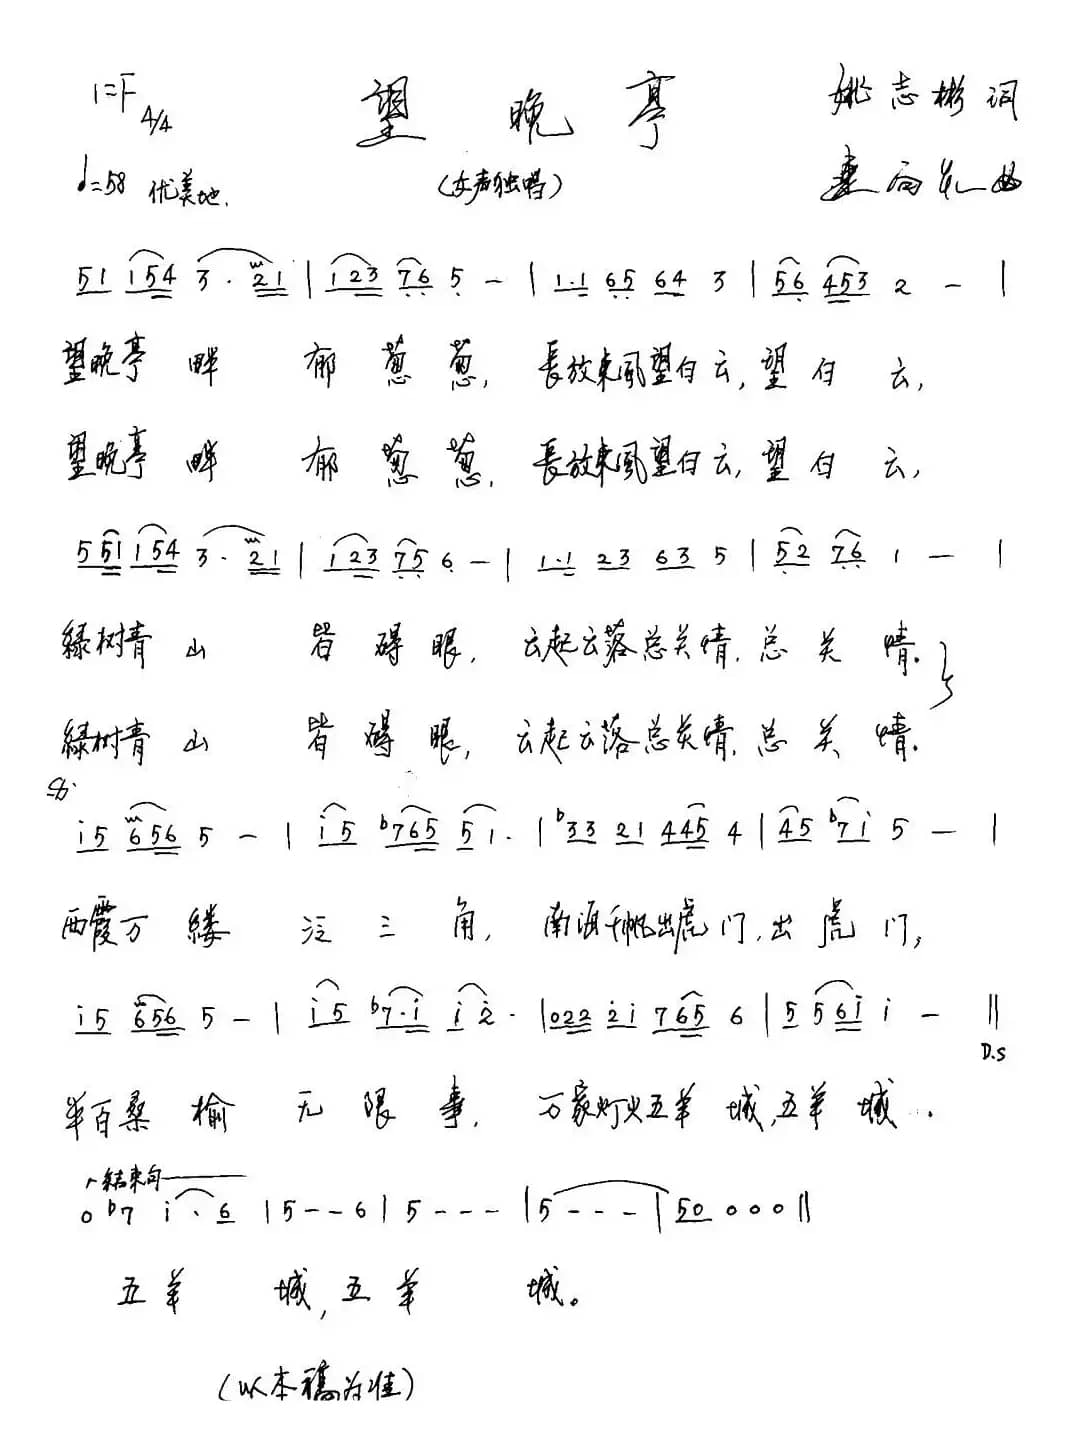 1=F 4/4 望晚亭 姚志彬词
♩=58 优美地. (女声独唱) 曲
51 154 3·21 | 123 76 5 - | 1·1 65 64 3 | 56 453 2 - |
望晚亭畔 郁葱葱, 長放東風望白云, 望白云,
望晚亭畔 郁葱葱, 長放東風望白云, 望白云,
551 154 3·21 | 123 75 6 - | 1·1 23 63 5 | 52 76 1 - |
緑树青山 皆碍眼, 云起云落总关情, 总关情.
緑树青山 皆碍眼, 云起云落总关情, 总关情.
i5 656 5 - | i5 b765 51· | b33 21 445 4 | 45 b7i 5 - |
西霞万縷 泛三角, 南海千帆出虎门, 出虎门;
i5 656 5 - | i5 b7·i i2· | 022 2i 765 6 | 5 56i i - ‖
D.S
半百桑榆 无限事, 万家灯火五羊城, 五羊城….
结束句
0 b7 i·6 | 5--6 | 5--- | 5--- | 50 000 ‖
五羊城, 五羊城。
(以本稿为准)